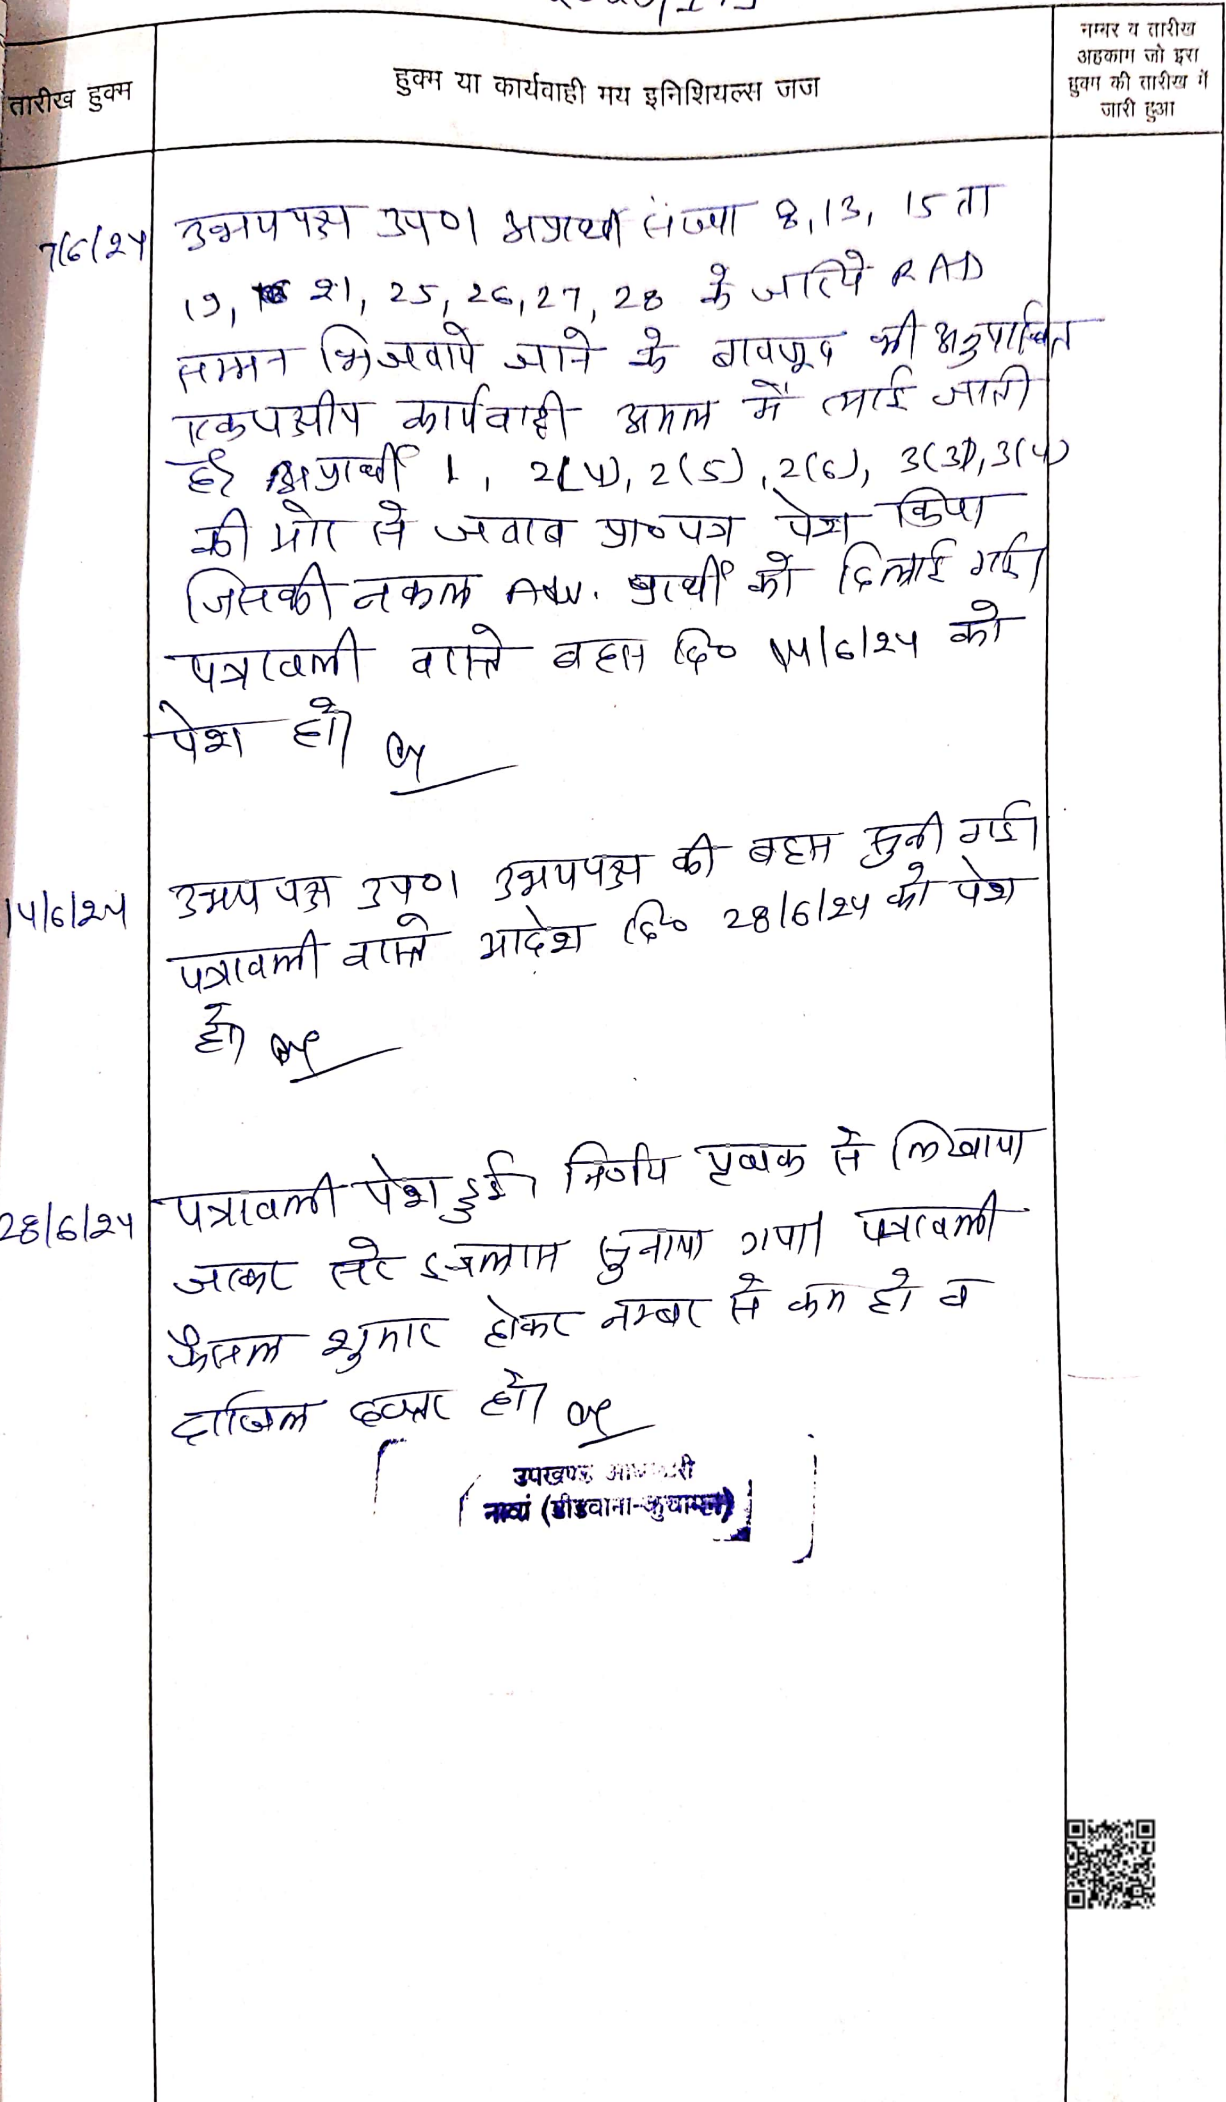 तारीख हुक्म
हुक्म या कार्यवाही मय इनिशियल्स जज
नम्बर व तारीख
अहकाम जो इस
हुक्म की तारीख में
जारी हुआ
7/6/24
उभयपक्ष उप०। अप्रार्थी संख्या 8, 13, 15 ता
19, 21, 25, 26, 27, 28 के जरिये RAD
सम्मन भिजवाये जाने के बावजूद भी अनुपस्थित
एकपक्षीय कार्यवाही अमल में लाई जाती
है। अप्रार्थी 1, 2(4), 2(5), 2(6), 3(3), 3(4)
की ओर से जवाब प्रा०पत्र पेश किया
जिसकी नकल Adv. प्रार्थी को दिलाई गई।
पत्रावली वास्ते बहस दि० 14/6/24 को
पेश हो।
14/6/24
उभय पक्ष उप०। उभयपक्ष की बहस सुनी गई।
पत्रावली वास्ते आदेश दि० 28/6/24 को पेश
हो।
28/6/24
पत्रावली पेश हुई। निर्णय पृथक से लिखाया
जाकर सरे इजलास सुनाया गया। पत्रावली
फैसल शुमार होकर नम्बर से कम हो व
दाखिल दफ्तर हो।
उपखण्ड
नावां (डीडवाना-कुचामन)